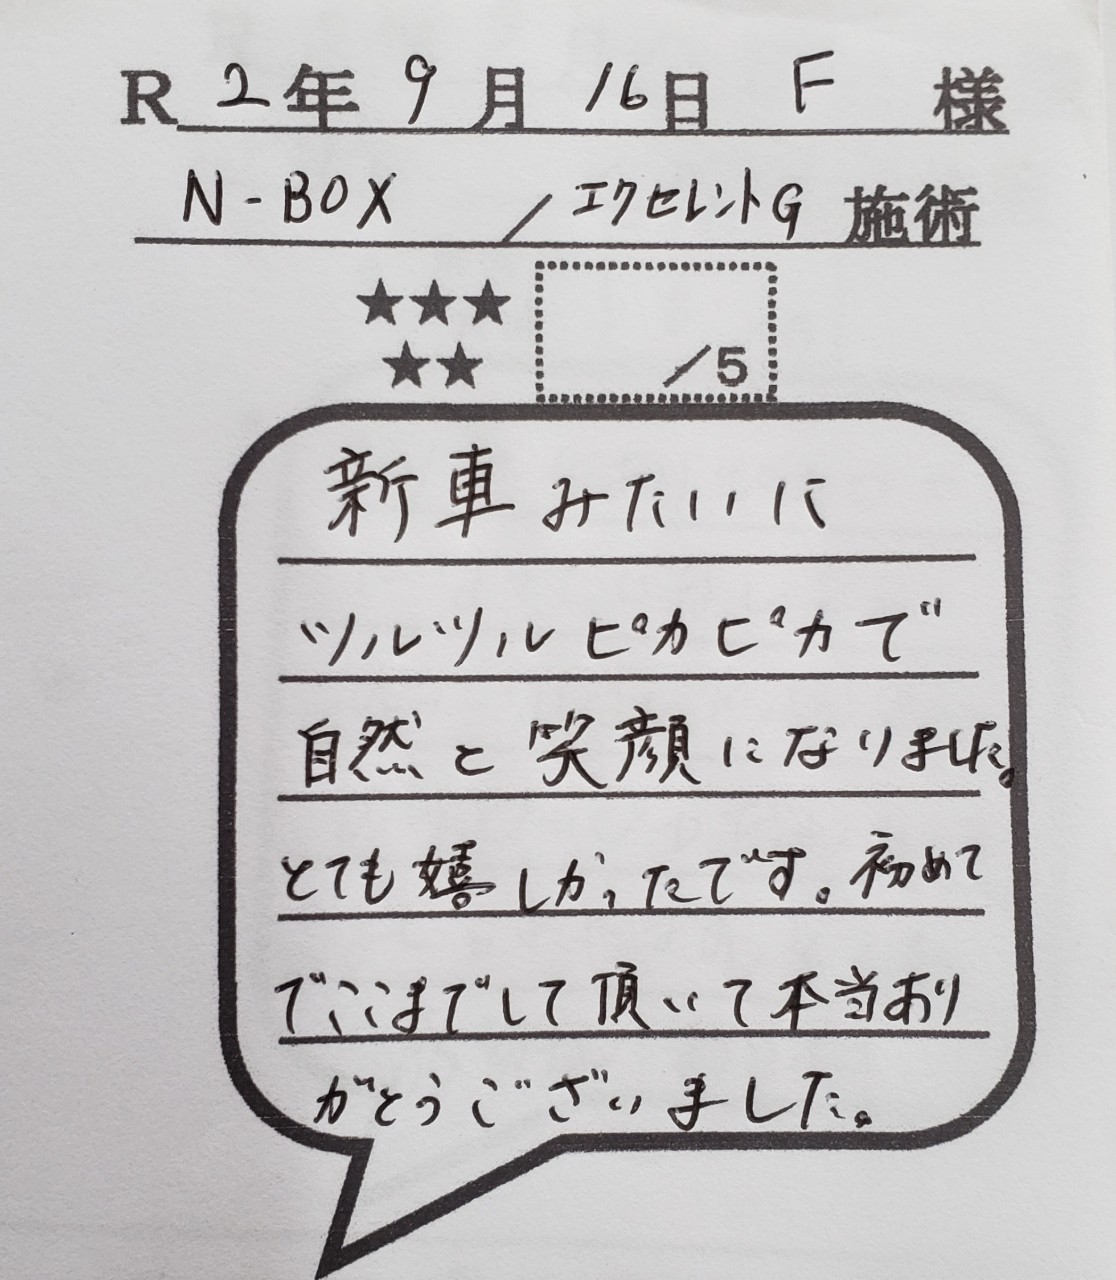 R 2年 9月 16日 F 様
N-BOX / エクセレントG 施術
★★★
★★
/5
新車みたいに
ツルツルピカピカで
自然と笑顔になりました。
とても嬉しかったです。初めて
でここまでして頂いて本当あり
がとうございました。